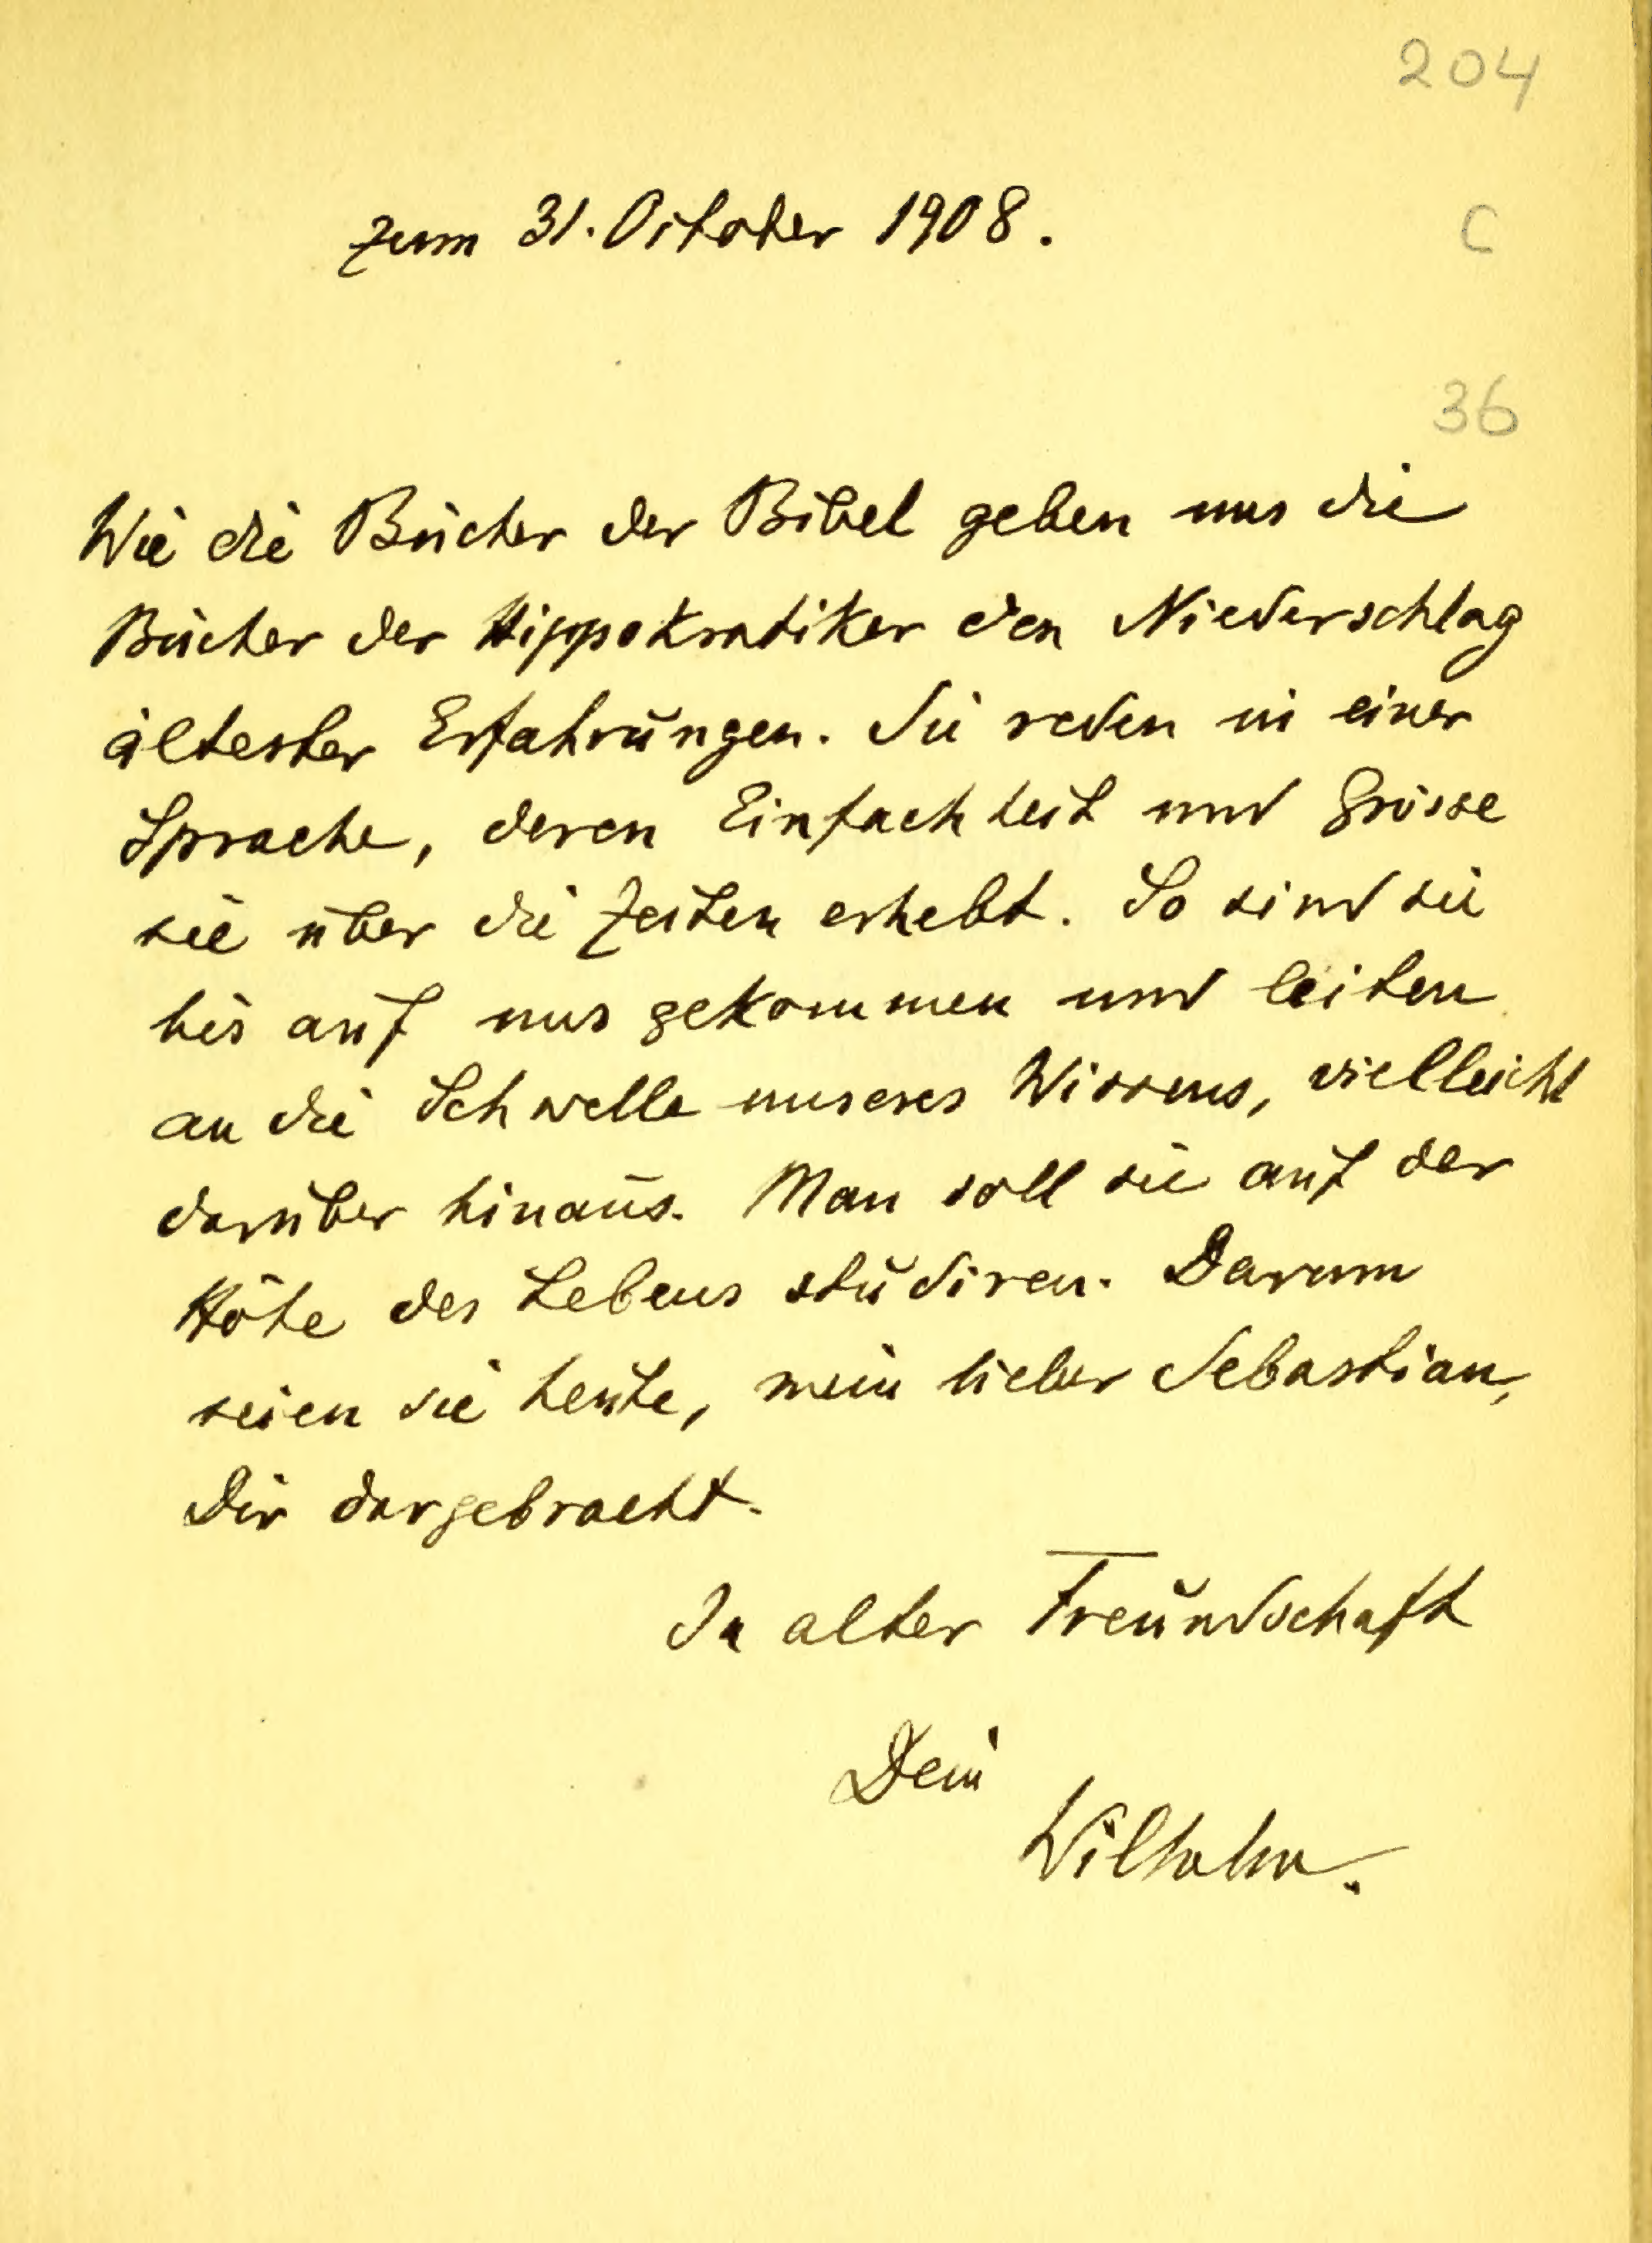 204
zum 31. October 1908.
C
36
Wie die Bücher der Bibel geben uns die
Bücher der Hippokratiker den Niederschlag
ältester Erfahrungen. Sie reden in einer
Sprache, deren Einfachheit und Grösse
sie über die Zeiten erhebt. So sind sie
bis auf uns gekommen und leiten
an die Schwelle unseres Wissens, vielleicht
darüber hinaus. Man soll sie auf der
Höhe des Lebens studiren. Darum
seien sie heute, mein lieber Sebastian,
Dir dargebracht.
In alter Freundschaft
Dein
Wilhelm.